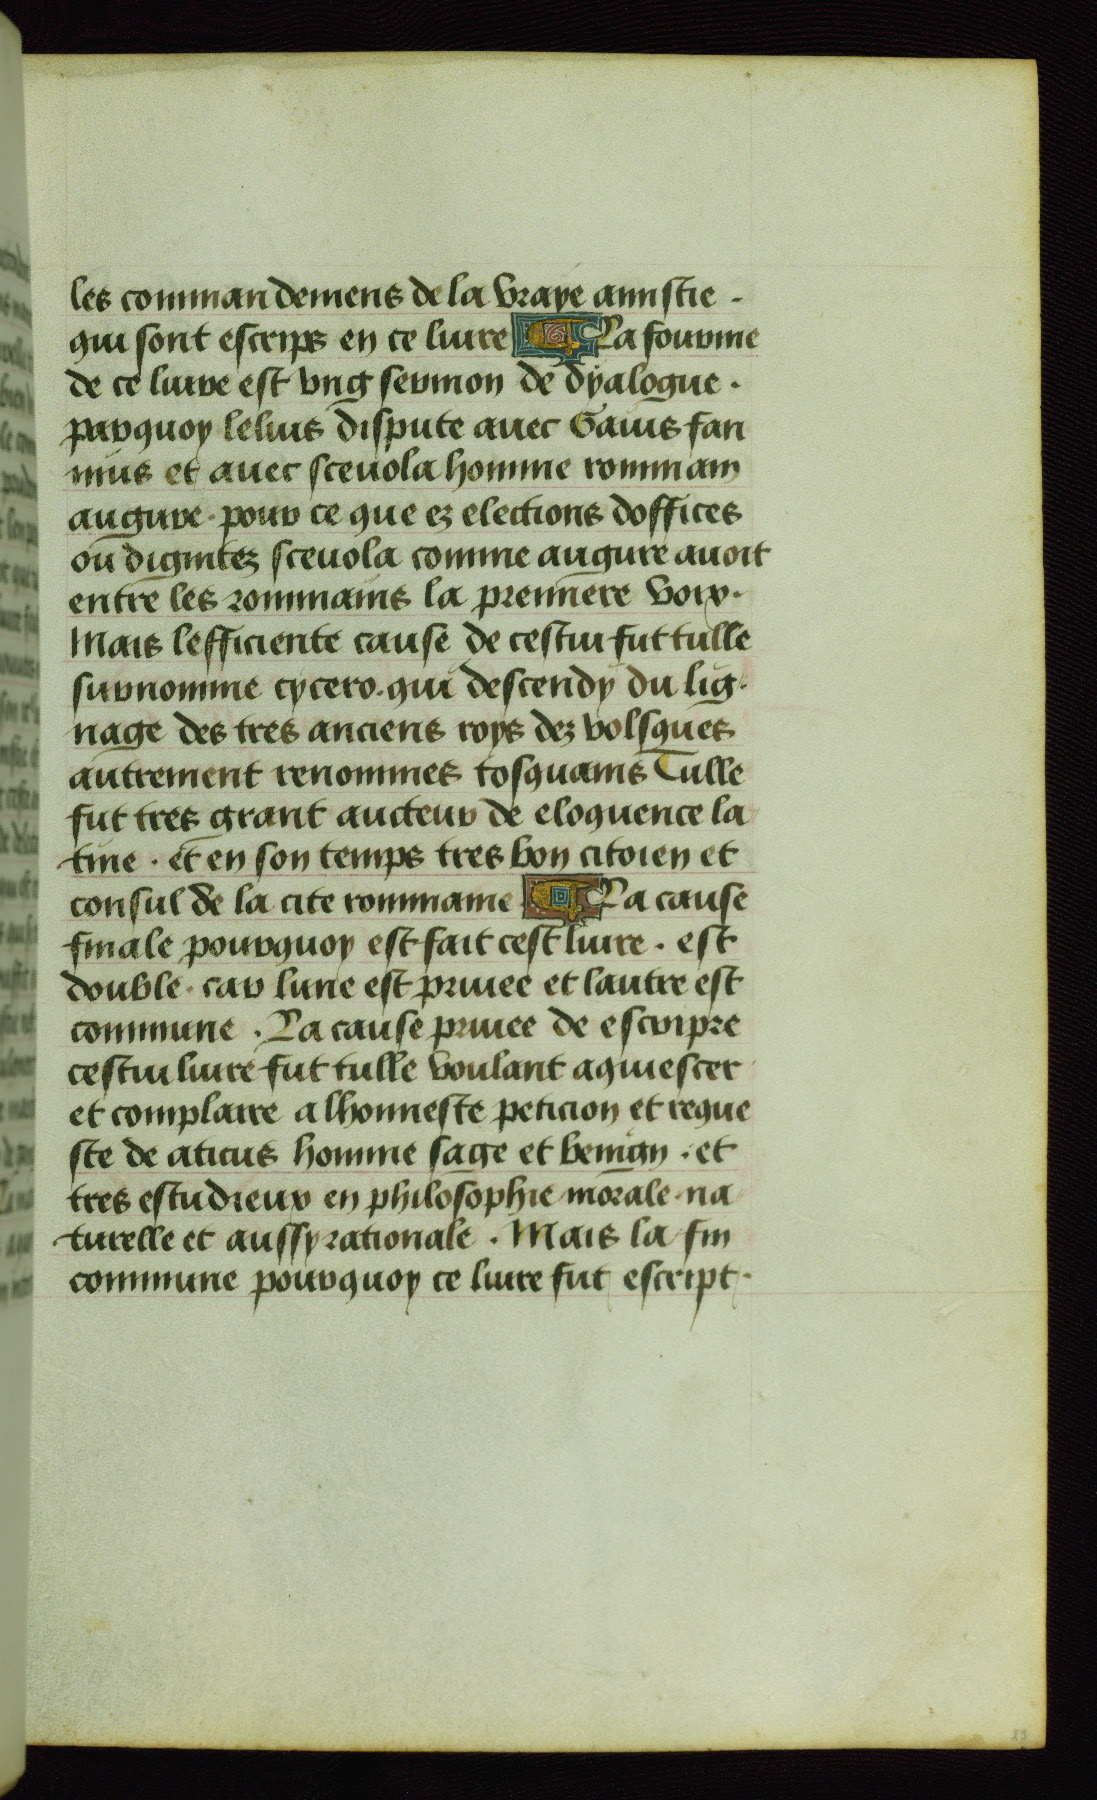 les commandemens de la vraye amistie .
qui sont escrips en ce liure La fourme
de ce liure est vng sermon de dyalogue .
parquoy lelius dispute auec Gaius fan
nius et auec sceuola homme rommain
augure . pour ce que ez elections doffices
ou dignitez sceuola comme augure auoit
entre les rommains la premiere voix .
Mais lefficiente cause de cestui fut tulle
surnomme cycero . qui descendy du lig
nage des tres anciens roys dez volsques
autrement renommes tosquains Tulle
fut tres grant aucteur de eloquence la
tine . et en son temps tres bon citoien et
consul de la cite rommaine La cause
finale pourquoy est fait cest liure . est
double . car lune est priuee et lautre est
commune . La cause priuee de escripre
cestui liure fut tulle voulant aquiescer
et complaire a lhonneste peticion et reque
ste de aticus homme sage et benign . et
tres estudieux en philosophie morale na
turelle et aussy rationale . Mais la fin
commune pourquoy ce liure fut escript .
83